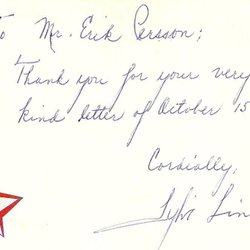 To Mr. Erik Persson;
Thank you for your very
kind letter of October 15
Cordially,